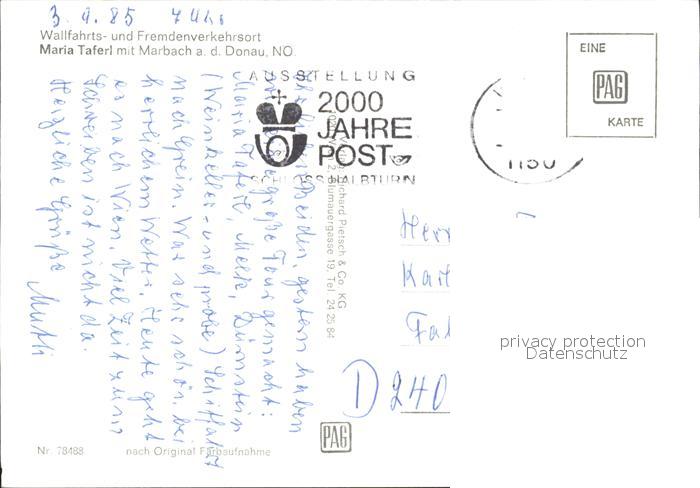 3.9.85 7 Uhr
Wallfahrts- und Fremdenverkehrsort
Maria Taferl mit Marbach a. d. Donau, NÖ.
AUSSTELLUNG
2000
JAHRE
POST
SCHLOSS HALBTURN
1150
EINE
PAG
KARTE
gestern haben
große Tour gemacht:
Maria Taferl, Melk, Dürnstein
(Weinkeller- und probe) Schiffahrt
nach Grein. War sehr schön, bei
herrlichem Wetter. Heute geht
es nach Wien. Viel Zeit zum
Schreiben ist nicht da.
Herzliche Grüße
Mutti
Richard Pietsch & Co. KG
Blumauergasse 19, Tel. 24 25 84
Herr
D 240
privacy protection
Datenschutz
PAG
Nr. 78488 nach Original Farbaufnahme